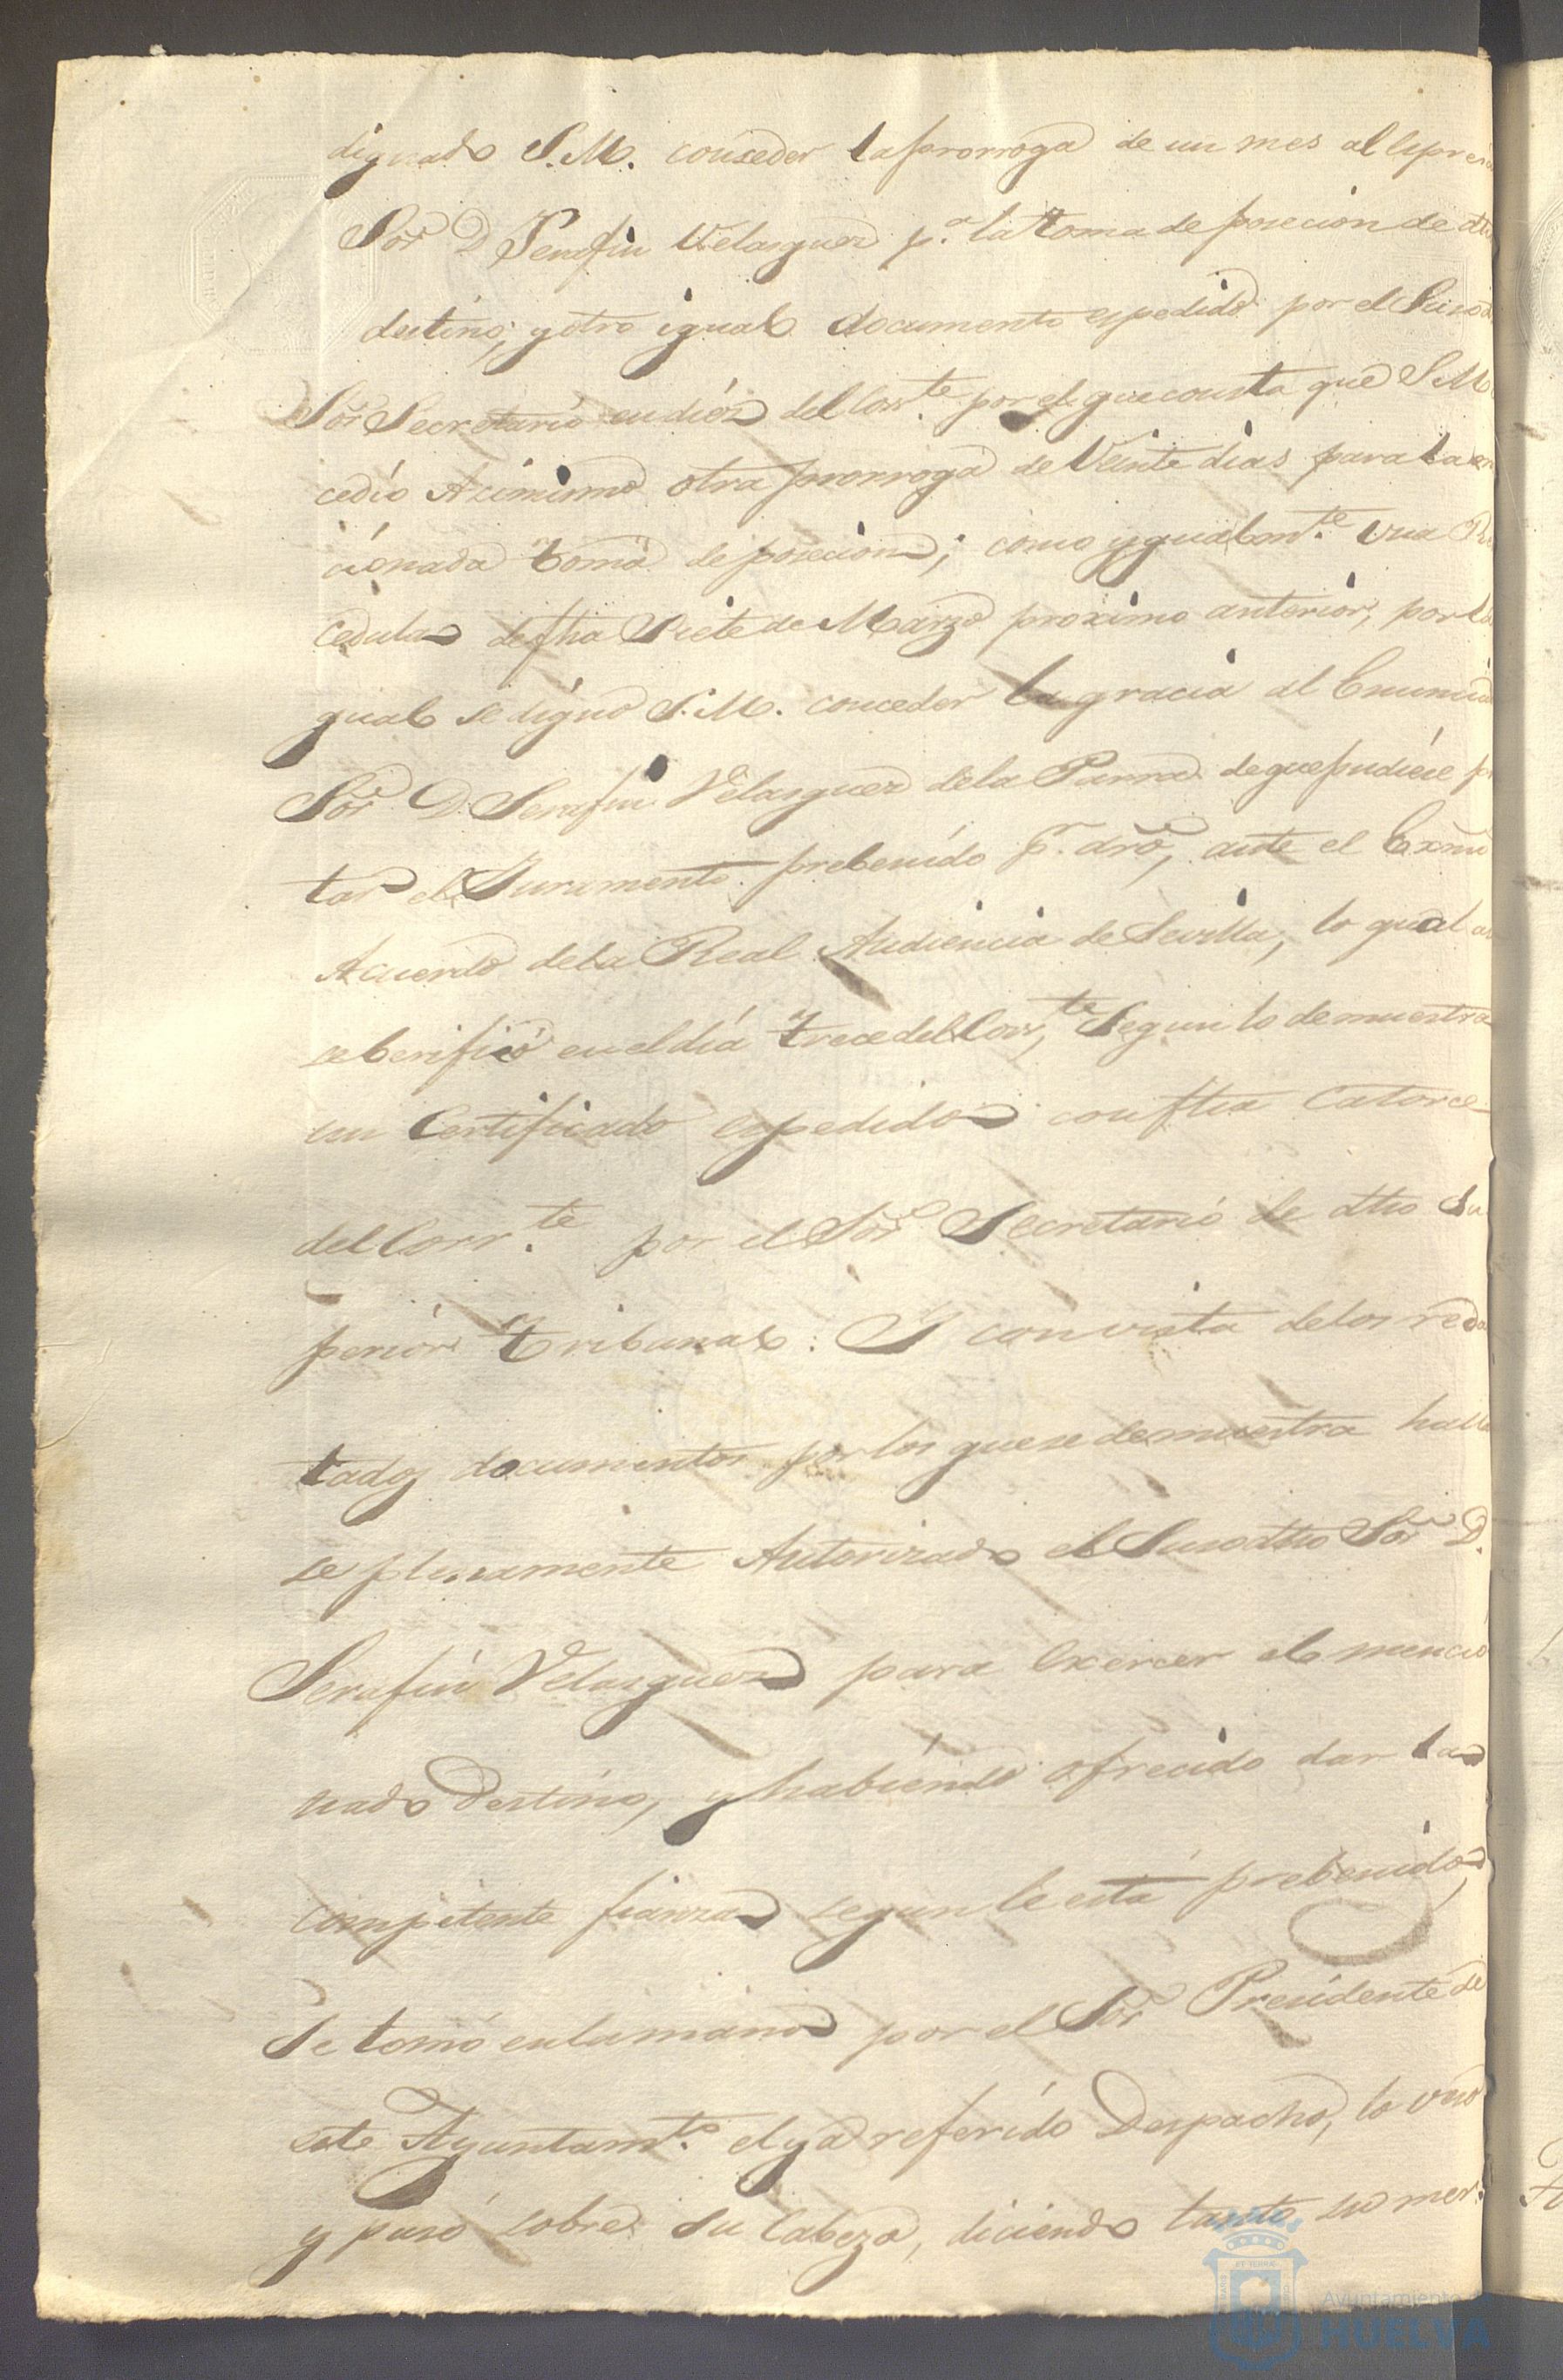 dignado S.M. conseder la prorroga de un mes al expre
Sor D Serafin Velasquez p.a la toma de posecion de dho
destino; y otro igual documento espedido por el Suso
Sor Secretario en diez del Corr.te por el que consta que S.M
cedio Acimismo otra prorroga de Veinte dias para la en
cionada toma de posecion; como ygualm.te una Rl
Cedula de fha Siete de Marzo proximo anterior, por la
qual se digno S.M. conceder la gracia al Enuncia
Sor D. Serafin Velasquez de la Parra de que pudiese p
tar el Juramento prebenido p.r dro, ante el Exmo
Acuerdo de la Real Audiencia de Sevilla, lo qual a
se berificó en el día trece del Corr.te Segun lo demuestra
un Certificado espedido con fha Catorce
del Corr.te por el Sor Secretario de dho Su
perior tribunal: Y con vista de los reda
tados documentos por los que se demuestra halla
se plenamente Autorizado el Susodho Sor D.
Serafin Velasquez para Exercer el mencio
nado Destino, y habiendo ofrecido dar la
competente fianza segun le está prebenido,
se tomó en la mano por el Sor Presidente de
este Ayuntam.to el ya referido Despacho, lo vesó
y pusó sobre su Cabeza, diciendo tanto su mer.
Ayuntamiento
HUELVA